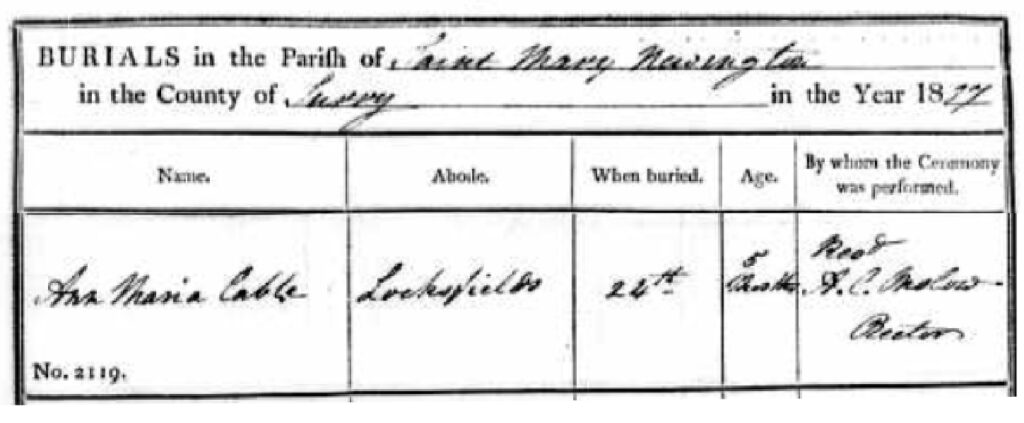 BURIALS in the Pariſh of Saint Mary Newington
in the County of Surry in the Year 1817
Name. Abode. When buried. Age. By whom the Ceremony was performed.
Ann Maria Cable Locksfields 24th 5 Months Revd A. C. Onslow Rector
No. 2119.